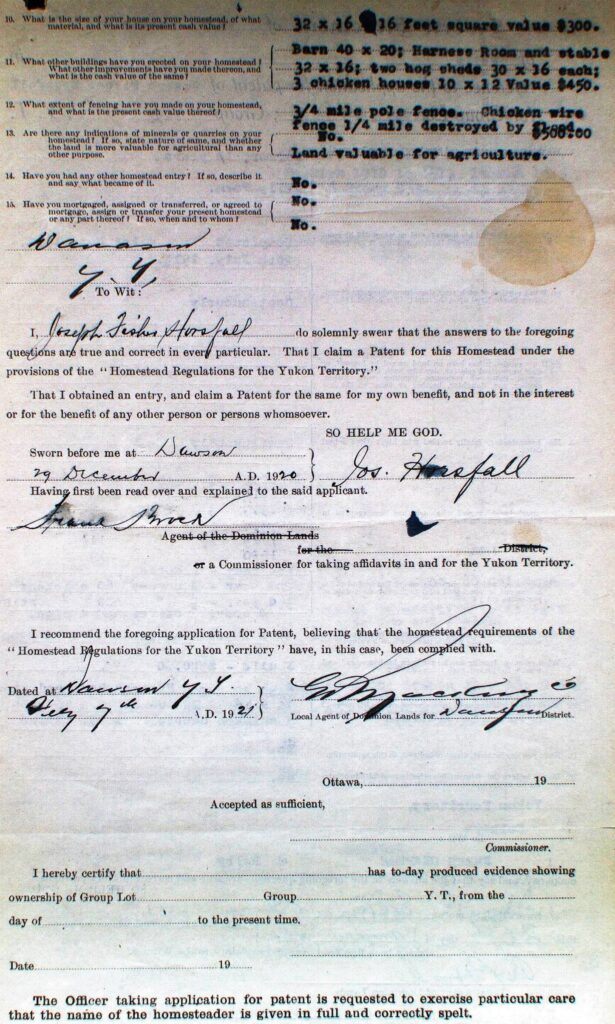 10. What is the size of your house on your homestead, of what
material, and what is its present cash value?
32 x 16 16 feet square value $300.
11. What other buildings have you erected on your homestead?
What other improvements have you made thereon, and
what is the cash value of the same?
Barn 40 x 20; Harness Room and stable
32 x 16; two hog sheds 30 x 16 each;
3 chicken houses 10 x 12 Value $450.
12. What extent of fencing have you made on your homestead,
and what is the present cash value thereof?
3/4 mile pole fence. Chicken wire
fence 1/4 mile destroyed by
$500.00
13. Are there any indications of minerals or quarries on your
homestead? If so, state nature of same, and whether
the land is more valuable for agricultural than any
other purpose.
No.
Land valuable for agriculture.
14. Have you had any other homestead entry? If so, describe it
and say what became of it.
No.
15. Have you mortgaged, assigned or transferred, or agreed to
mortgage, assign or transfer your present homestead
or any part thereof? If so, when and to whom?
No.
No.
Dawson
Y. Y.
To Wit:
I, Joseph Fisher Horsfall do solemnly swear that the answers to the foregoing
questions are true and correct in every particular. That I claim a Patent for this Homestead under the
provisions of the "Homestead Regulations for the Yukon Territory."
That I obtained an entry, and claim a Patent for the same for my own benefit, and not in the interest
or for the benefit of any other person or persons whomsoever.
SO HELP ME GOD.
Sworn before me at Dawson
29 December A.D. 1920
Jos. Horsfall
Having first been read over and explained to the said applicant.
Agent of the Dominion Lands
for the District,
or a Commissioner for taking affidavits in and for the Yukon Territory.
I recommend the foregoing application for Patent, believing that the homestead requirements of the
"Homestead Regulations for the Yukon Territory" have, in this case, been complied with.
Dated at Dawson Y T.
7th A.D. 1921
Local Agent of Dominion Lands for Dawson District.
Ottawa, 19
Accepted as sufficient,
Commissioner.
I hereby certify that has to-day produced evidence showing
ownership of Group Lot Group Y. T., from the
day of to the present time.
Date 19
The Officer taking application for patent is requested to exercise particular care
that the name of the homesteader is given in full and correctly spelt.